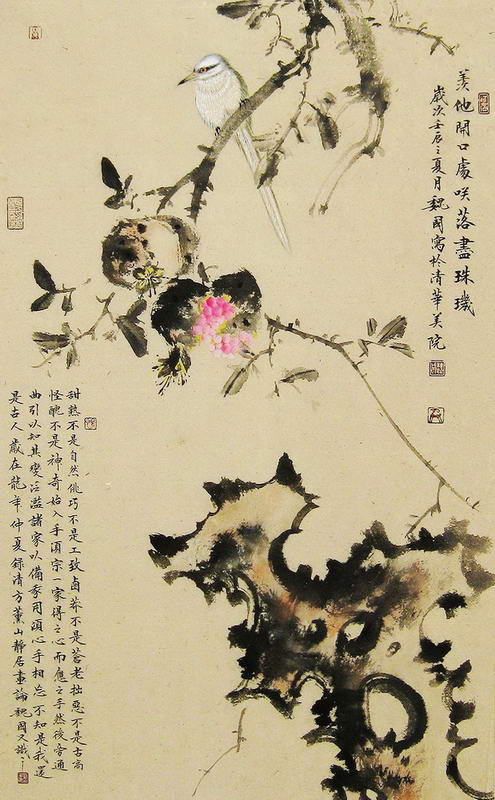 羨他開口處咲落盡珠璣
歲次壬辰之夏月魏國寫於清華美院
甜熟不是自然佻巧不是工致鹵莽不是蒼老拙惡不是古高
怪醜不是神奇始入手須宗一家得之心而應之手然後旁通
曲引以知其變泛濫諸家以備我用須心手相忘不知是我還
是古人歲在龍年仲夏錄清方薰山靜居畫論魏國又識